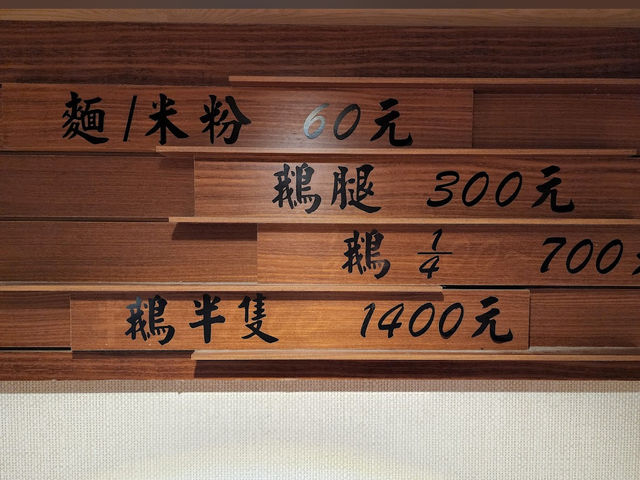 麵/米粉 60元
鵝腿 300元
鵝 1/4 700元
鵝半隻 1400元